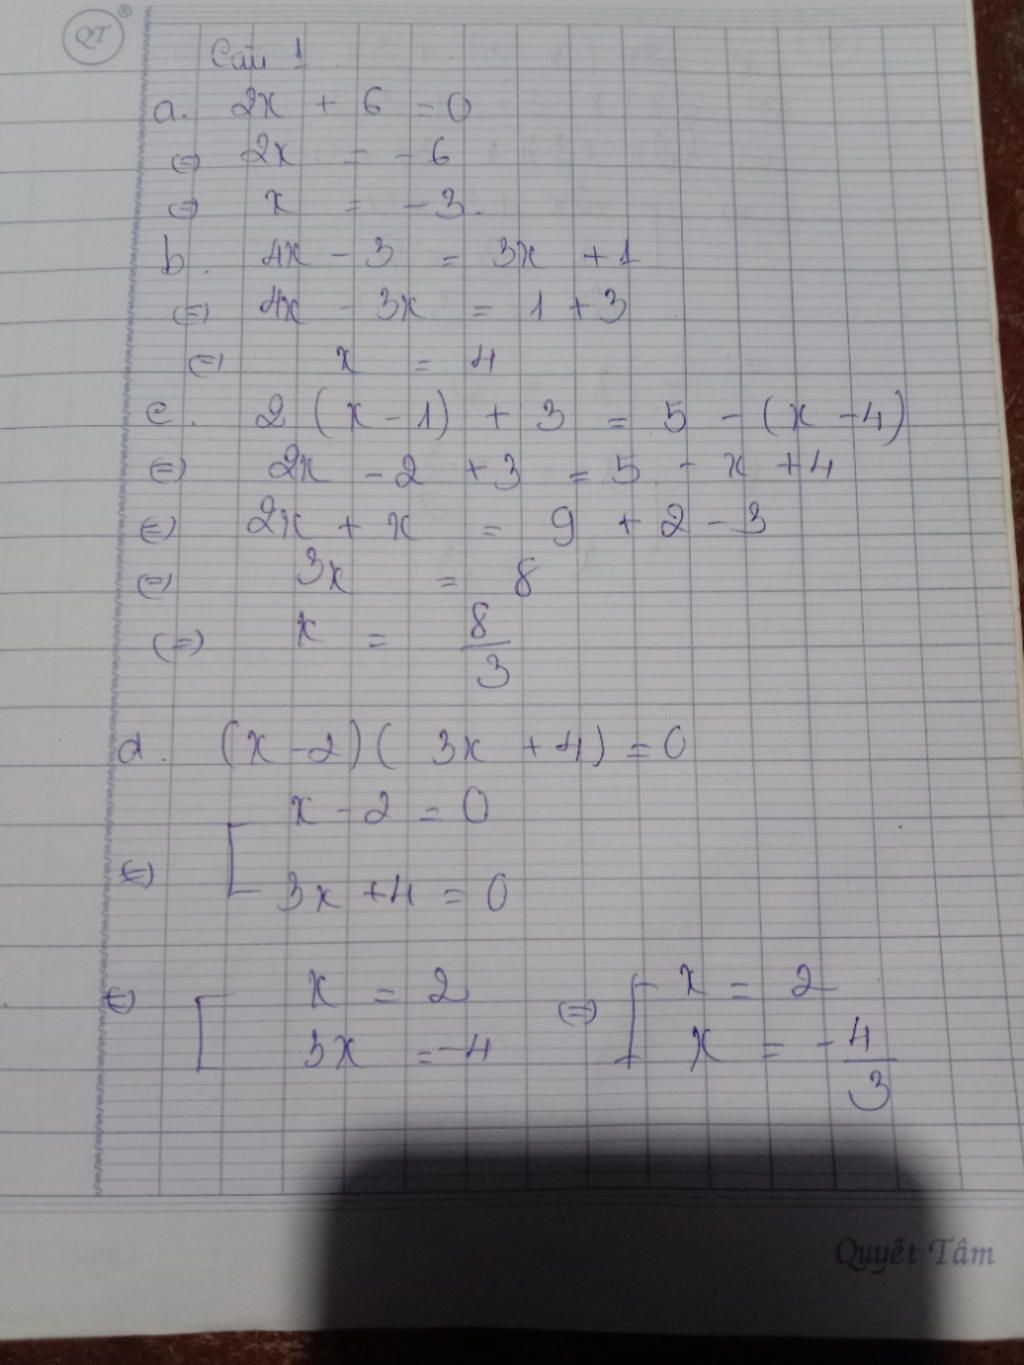 QT
Câu 1
a. 2x + 6 = 0
⇔ 2x = -6
⇔ x = -3.
b. 4x - 3 = 3x + 1
⇔ 4x - 3x = 1 + 3
⇔ x = 4
c. 2 (x - 1) + 3 = 5 - (x - 4)
⇔ 2x - 2 + 3 = 5 - x + 4
⇔ 2x + x = 9 + 2 - 3
⇔ 3x = 8
⇔ x = 8/3
d. (x - 2)( 3x + 4) = 0
⇔ [ x - 2 = 0
3x + 4 = 0
⇔ [ x = 2 ⇔ [ x = 2
3x = -4 x = -4/3
Quyết Tâm